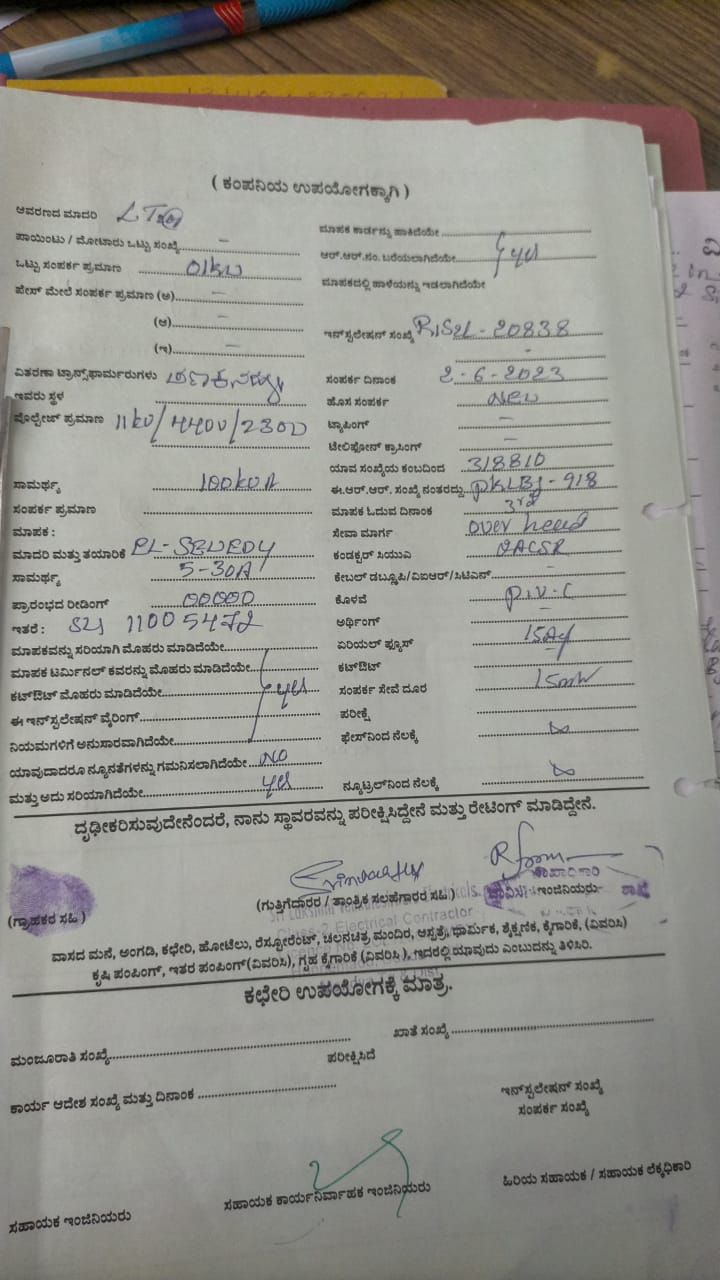 ( ಕಂಪನಿಯ ಉಪಯೋಗಕ್ಕಾಗಿ )
ಆವರಣದ ಮಾದರಿ LT
ಮಾಪಕ ಕಾರ್ಡನ್ನು ಹಾಕಿದೆಯೇ
ಪಾಯಿಂಟು / ಮೋಟಾರು ಒಟ್ಟು ಸಂಖ್ಯೆ –
ಆರ್.ಆರ್.ಸಂ. ಬರೆಯಲಾಗಿದೆಯೇ yes
ಒಟ್ಟು ಸಂಪರ್ಕ ಪ್ರಮಾಣ 01kW
ಮಾಪಕದಲ್ಲಿ ಹಾಳೆಯನ್ನು ಇಡಲಾಗಿದೆಯೇ
ಫೇಸ್ ಮೇಲೆ ಸಂಪರ್ಕ ಪ್ರಮಾಣ (ಅ) –
(ಆ) –
ಇನ್‌ಸ್ಟಲೇಷನ್ ಸಂಖ್ಯೆ RJS2L-20838
(ಇ) –
ವಿತರಣಾ ಟ್ರಾನ್ಸ್‌ಫಾರ್ಮರುಗಳು
ಸಂಪರ್ಕ ದಿನಾಂಕ 2-6-2023
ಇವರು ಸ್ಥಳ
ಹೊಸ ಸಂಪರ್ಕ New
ವೊಲ್ಟೇಜ್ ಪ್ರಮಾಣ 11kv/4400/230v
ಟ್ಯಾಪಿಂಗ್ –
ಟೆಲಿಫೋನ್ ಕ್ರಾಸಿಂಗ್ –
ಯಾವ ಸಂಖ್ಯೆಯ ಕಂಬದಿಂದ 318810
ಸಾಮರ್ಥ್ಯ 100kVA
ಈ.ಆರ್.ಆರ್. ಸಂಖ್ಯೆ ನಂತರದ್ದು PKLBJ-918
ಸಂಪರ್ಕ ಪ್ರಮಾಣ
ಮಾಪಕ ಓದುವ ದಿನಾಂಕ 3rd
ಮಾಪಕ :
ಸೇವಾ ಮಾರ್ಗ over head
ಮಾದರಿ ಮತ್ತು ತಯಾರಿಕೆ
ಕಂಡಕ್ಟರ್ ಸಿಯುವಿ
ಸಾಮರ್ಥ್ಯ 5-30A
ಕೇಬಲ್ ಡಬ್ಲ್ಯೂಪಿ/ವಿಐಆರ್/ಸಿಟಿಎಸ್ –
ಪ್ರಾರಂಭದ ರೀಡಿಂಗ್ 00000
ಕೊಳವೆ P.V.C
ಇತರೆ : 11005472
ಅರ್ಥಿಂಗ್ –
ಮಾಪಕವನ್ನು ಸರಿಯಾಗಿ ಮೊಹರು ಮಾಡಿದೆಯೇ
ಏರಿಯಲ್ ಫ್ಯೂಸ್
ಮಾಪಕ ಟರ್ಮಿನಲ್ ಕವರನ್ನು ಮೊಹರು ಮಾಡಿದೆಯೇ
ಕಟ್‌ಔಟ್
ಕಟ್‌ಔಟ್ ಮೊಹರು ಮಾಡಿದೆಯೇ yes
ಸಂಪರ್ಕ ಸೇವೆ ದೂರ
ಈ ಇನ್‌ಸ್ಟಲೇಷನ್ ವೈರಿಂಗ್
ಪರೀಕ್ಷೆ
ನಿಯಮಗಳಿಗೆ ಅನುಸಾರವಾಗಿದೆಯೇ
ಫೇಸ್‌ನಿಂದ ನೆಲಕ್ಕೆ
ಯಾವುದಾದರೂ ನ್ಯೂನತೆಗಳನ್ನು ಗಮನಿಸಲಾಗಿದೆಯೇ NO
ಮತ್ತು ಅದು ಸರಿಯಾಗಿದೆಯೇ yes
ನ್ಯೂಟ್ರಲ್‌ನಿಂದ ನೆಲಕ್ಕೆ
ದೃಢೀಕರಿಸುವುದೇನೆಂದರೆ, ನಾನು ಸ್ಥಾವರವನ್ನು ಪರೀಕ್ಷಿಸಿದ್ದೇನೆ ಮತ್ತು ರೇಟಿಂಗ್ ಮಾಡಿದ್ದೇನೆ.
(ಗ್ರಾಹಕರ ಸಹಿ )
(ಗುತ್ತಿಗೆದಾರರ / ತಾಂತ್ರಿಕ ಸಲಹೆಗಾರರ ಸಹಿ )
ಇಂಜಿನಿಯರು
Electrical Contractor
ವಾಸದ ಮನೆ, ಅಂಗಡಿ, ಕಛೇರಿ, ಹೋಟೆಲು, ರೆಸ್ಟೋರೆಂಟ್, ಚಲನಚಿತ್ರ ಮಂದಿರ, ಆಸ್ಪತ್ರೆ, ಧಾರ್ಮಿಕ, ಶೈಕ್ಷಣಿಕ, ಕೈಗಾರಿಕೆ, (ವಿವರಿಸಿ)
ಕೃಷಿ ಪಂಪಿಂಗ್, ಇತರ ಪಂಪಿಂಗ್(ವಿವರಿಸಿ), ಗೃಹ ಕೈಗಾರಿಕೆ (ವಿವರಿಸಿ ), ಇದರಲ್ಲಿ ಯಾವುದು ಎಂಬುದನ್ನು ತಿಳಿಸಿರಿ.
ಕಛೇರಿ ಉಪಯೋಗಕ್ಕೆ ಮಾತ್ರ.
ಮಂಜೂರಾತಿ ಸಂಖ್ಯೆ
ಖಾತೆ ಸಂಖ್ಯೆ
ಪರೀಕ್ಷಿಸಿದೆ
ಕಾರ್ಯ ಆದೇಶ ಸಂಖ್ಯೆ ಮತ್ತು ದಿನಾಂಕ
ಇನ್‌ಸ್ಟಲೇಷನ್ ಸಂಖ್ಯೆ
ಸಂಪರ್ಕ ಸಂಖ್ಯೆ
ಸಹಾಯಕ ಇಂಜಿನಿಯರು
ಸಹಾಯಕ ಕಾರ್ಯನಿರ್ವಾಹಕ ಇಂಜಿನಿಯರು
ಹಿರಿಯ ಸಹಾಯಕ / ಸಹಾಯಕ ಲೆಕ್ಕಧಿಕಾರಿ